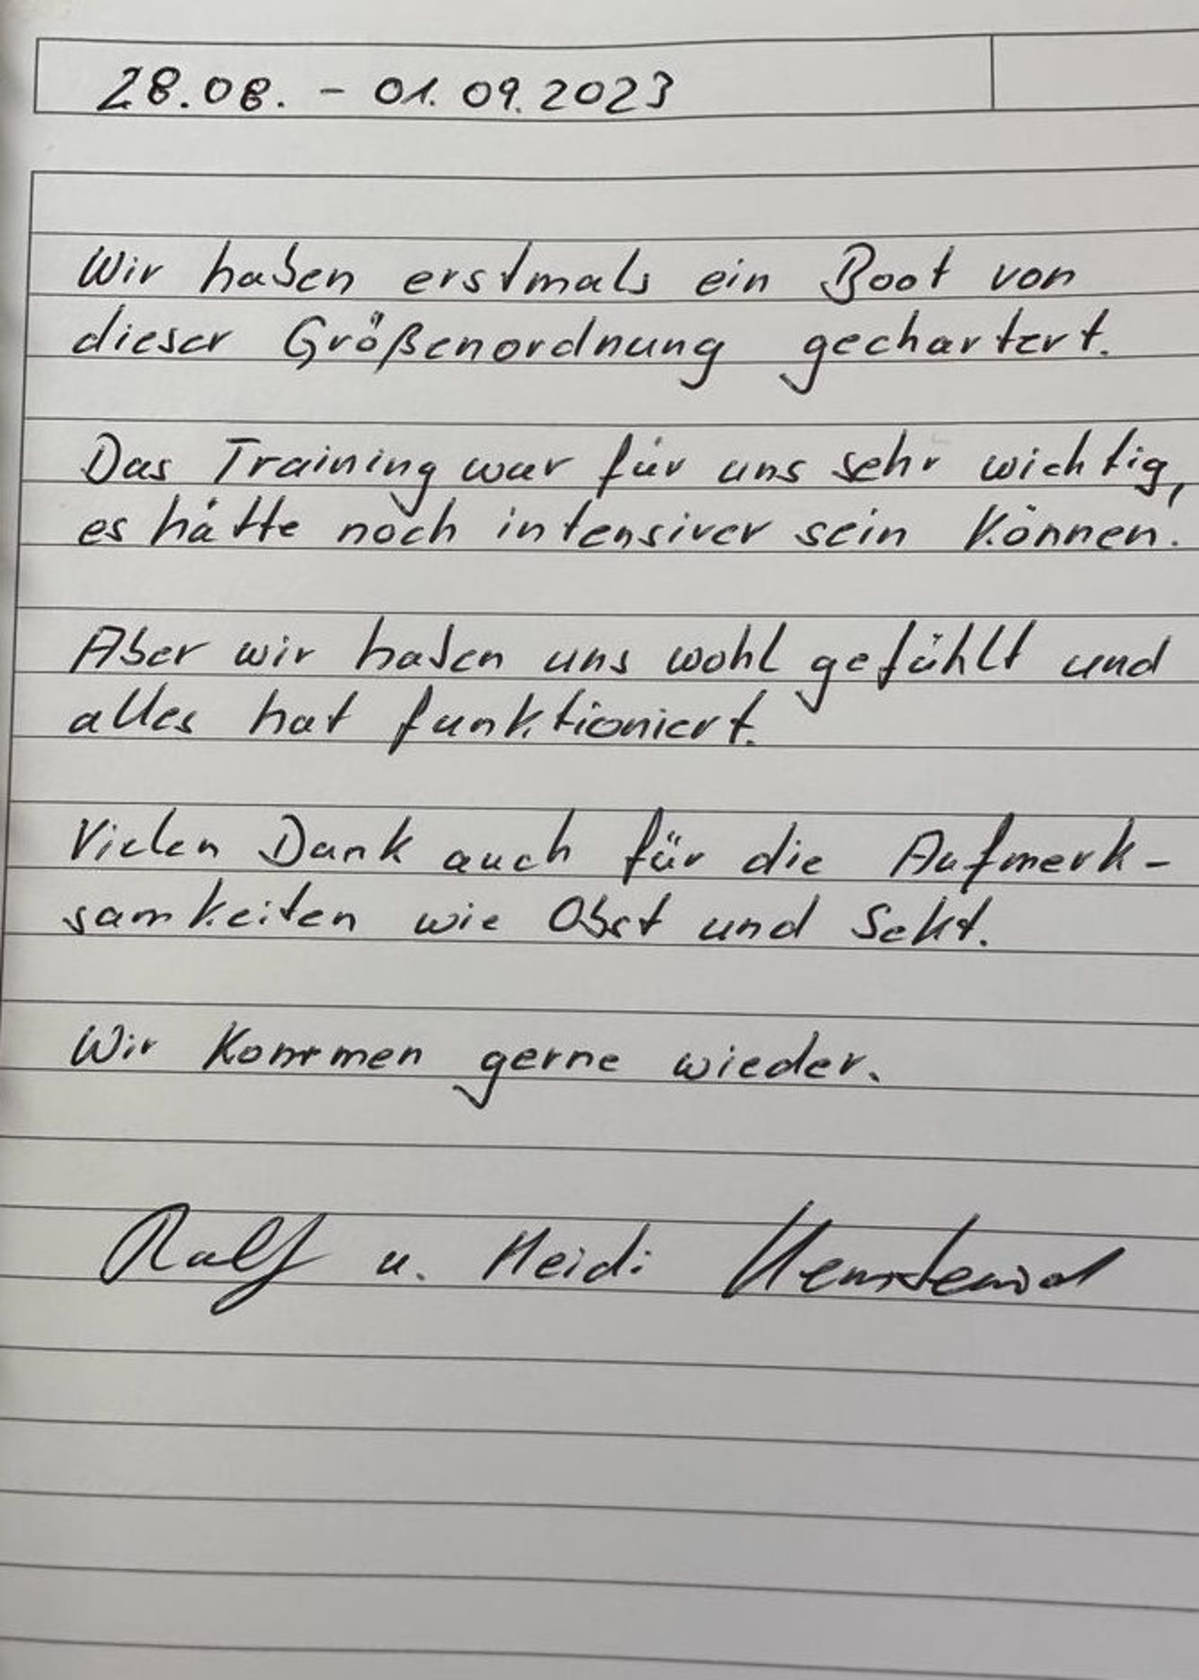 28.08. - 01.09.2023
Wir haben erstmals ein Boot von
dieser Größenordnung gechartert.
Das Training war für uns sehr wichtig,
es hätte noch intensiver sein können.
Aber wir haben uns wohl gefühlt und
alles hat funktioniert.
Vielen Dank auch für die Aufmerk-
samkeiten wie Obst und Sekt.
Wir kommen gerne wieder.
Ralf u. Heidi